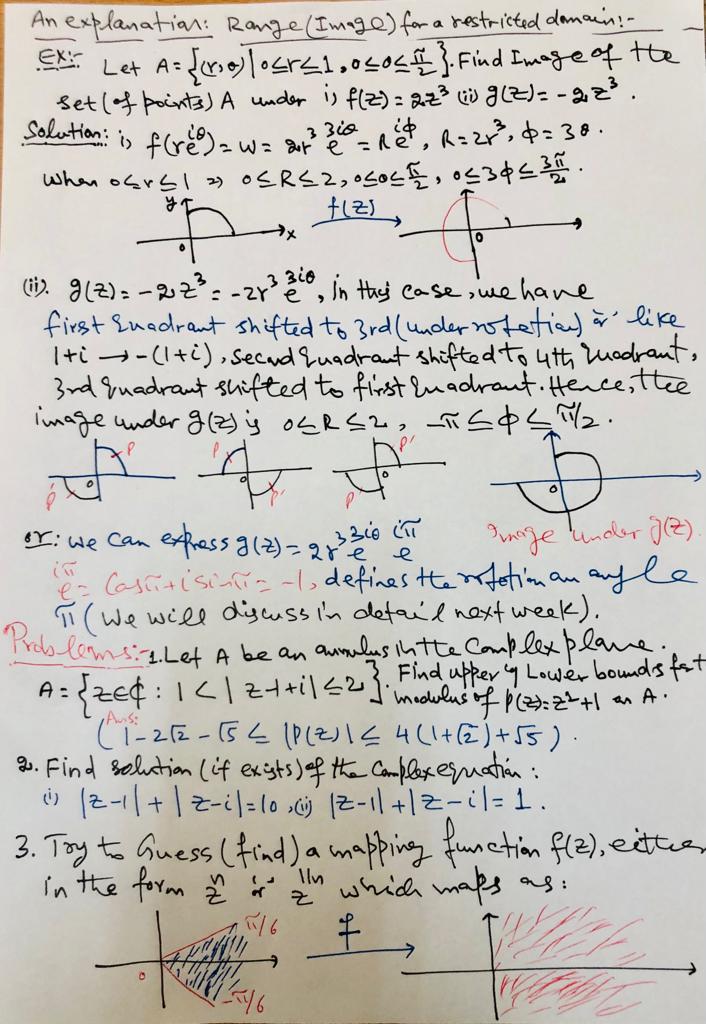 An explanation: Range (Image) for a restricted domain:-
Ex:- Let A = {(r,θ) | 0≤r≤1, 0≤θ≤π/2}. Find Image of the
set (of points) A under i) f(z) = 2z³ (ii) g(z) = -2z³.
Solution: i) f(re^{iθ}) = w = 2r³e^{3iθ} = Re^{iφ}, R = 2r³, φ = 3θ.
When 0≤r≤1 ⇒ 0≤R≤2, 0≤θ≤π/2, 0≤3φ≤3π/2.
y x 0 f(z) 0
(ii). g(z) = -2z³ = -2r³e^{3iθ}, in this case, we have
first Quadrant shifted to 3rd (under rotation) or like
1+i → -(1+i), second Quadrant shifted to 4th Quadrant,
3rd Quadrant shifted to first Quadrant. Hence, the
image under g(z) is 0≤R≤2, -π≤φ≤π/2.
P P' 0 P P' 0 P P' 0 0
Image under g(z).
or: we can express g(z) = 2r³e^{3iθ} e^{iπ}
e^{iπ} = Cosπ+i sinπ = -1, defines the rotation an angle
π (We will discuss in detail next week).
Problems:- 1. Let A be an annulus in the Complex plane.
A = {z∈₵ : 1 < |z-1+i| ≤ 2}. Find upper & Lower bounds for
modulus of p(z) = z²+1 on A.
Ans: (1-2√2-√5 ≤ |P(z)| ≤ 4(1+√2)+√5).
2. Find solution (if exists) of the Complex equation:
(i) |z-1| + |z-i| = 10, (ii) |z-1| + |z-i| = 1.
3. Try to Guess (find) a mapping function f(z), either
in the form zⁿ or z^{1/n} which maps as:
π/6 0 -π/6 f